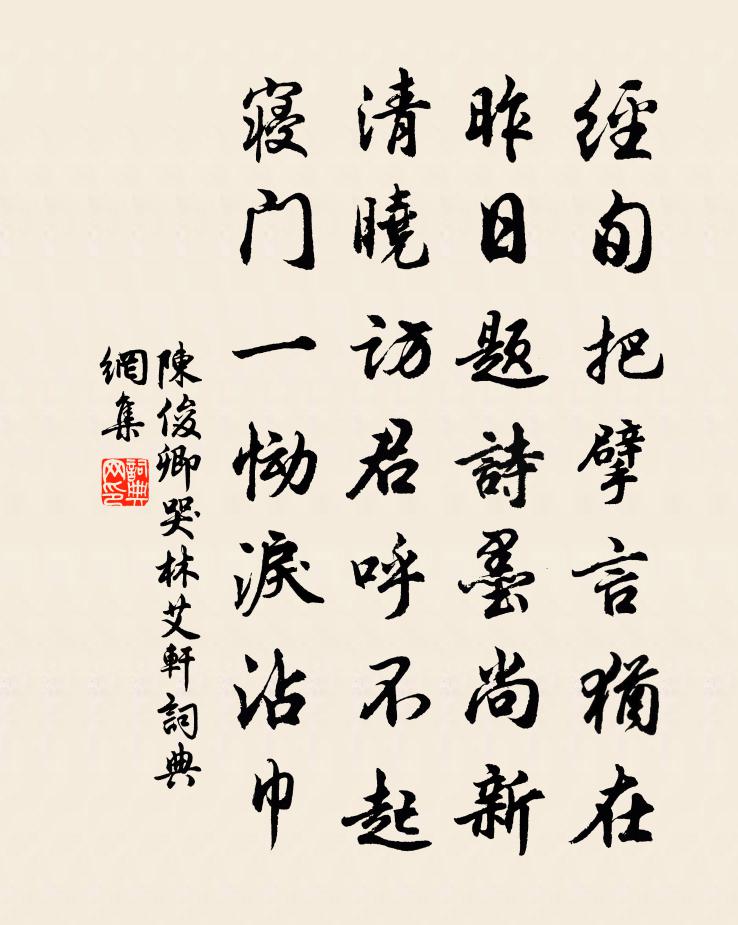 經旬把臂言猶在
昨日題詩墨尚新
清曉訪君呼不起
寢門一恸淚沾巾
陳俊卿哭林艾軒詞典
網集
詞典网印